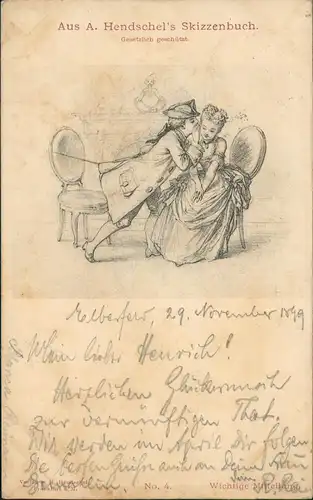 Aus A. Hendschel's Skizzenbuch.
Gesetzlich geschützt.
Elberfeld, 29. November 1899
Mein lieber Henrich!
Herzlichen Glückwunsch
zur vernünftigen That.
Wir werden im April Dir folgen
Die besten Grüße auch an
No. 4.
Wichtige Mitteilung.